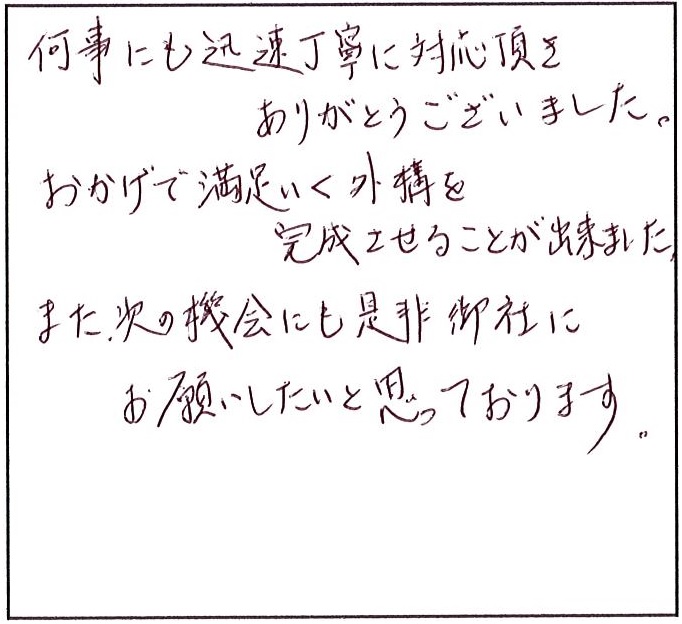 何事にも迅速丁寧に対応頂き
ありがとうございました。
おかげで満足いく外構を
完成させることが出来ました。
また、次の機会にも是非御社に
お願いしたいと思っております。